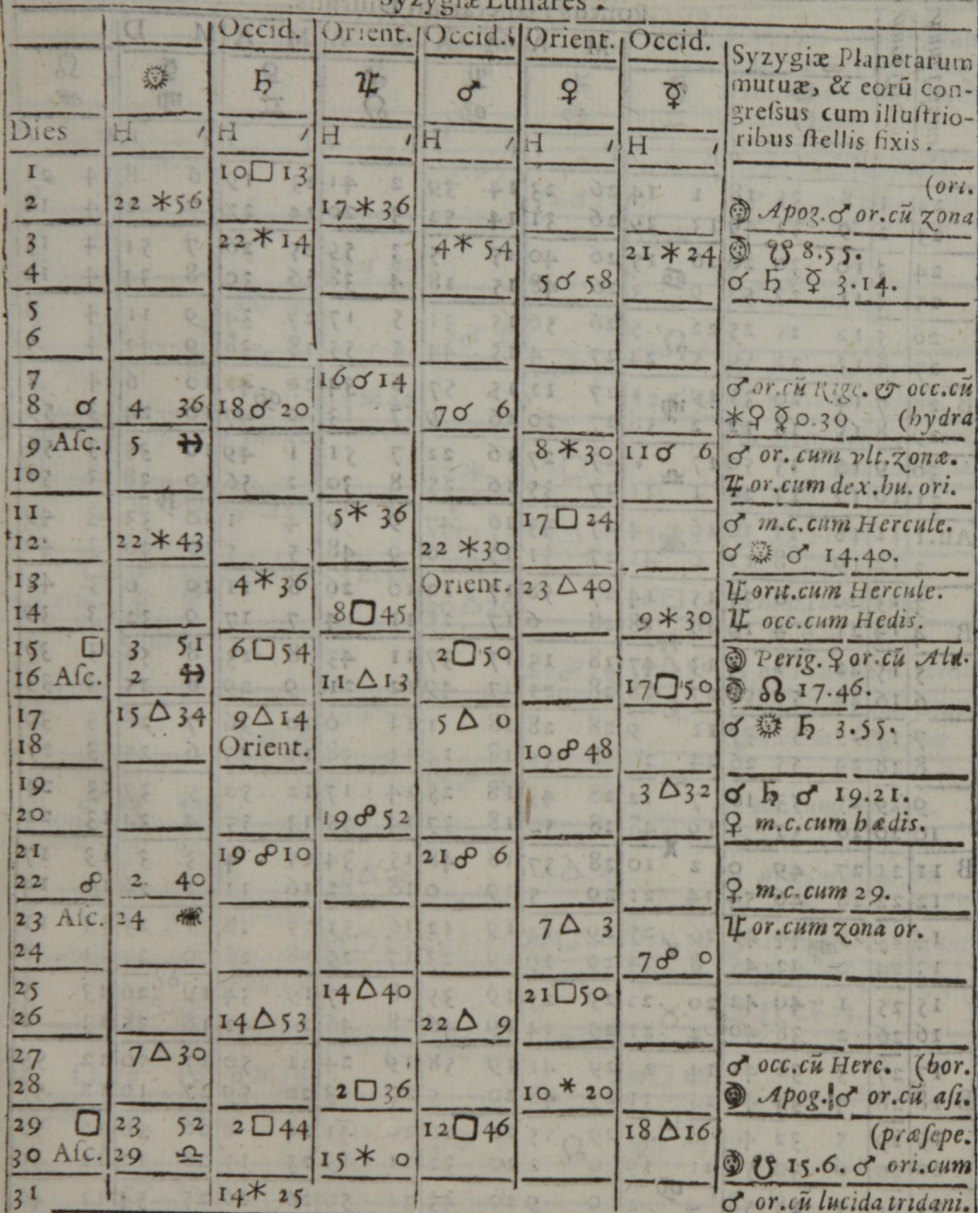 Syzygiæ Lunares.
Occid. Orient. Occid. Orient. Occid. Syzygiæ Planetarum
☉ ♄ ♃ ♂ ♀ ☿ mutuæ, & eorũ con-
greſsus cum illuſtrio-
Dies H ′ H ′ H ′ H ′ H ′ H ′ ribus ſtellis fixis.
1 10 □ 13 (ori.
2 22 * 56 17 * 36 ☽ Apog. ♂ or. cũ zona
3 22 * 14 4 * 54 21 * 24 ☽ ☋ 8.55.
4 5 ☌ 58 ☌ ♄ ☿ 3.14.
5
6
7 16 ☌ 14 ♂ or. cũ Rige. & occ. cũ
8 ☌ 4 36 18 ☌ 20 7 ☌ 6 * ♀ ☿ 0.30 (hydra
9 Aſc. 5 ♓ 8 * 30 11 ☌ 6 ♂ or. cum vlt. zonæ.
10 ♃ or. cum dex. hu. ori.
11 5 * 36 17 □ 24 ♂ m.c. cum Hercule.
12 22 * 43 22 * 30 ☌ ☉ ♂ 14.40.
13 4 * 36 Orient. 23 △ 40 ♃ orit. cum Hercule.
14 8 □ 45 9 * 30 ♃ occ. cum Hedis.
15 □ 3 51 6 □ 54 2 □ 50 ☽ Perig. ♀ or. cũ Ald.
16 Aſc. 2 ♓ 11 △ 13 17 □ 50 ☽ ☊ 17.46.
17 15 △ 34 9 △ 14 5 △ 0 ☌ ☉ ♄ 3.55.
18 Orient. 10 ☍ 48
19 3 △ 32 ☌ ♄ ♂ 19.21.
20 19 ☍ 52 ♀ m.c. cum hædis.
21 19 ☍ 10 21 ☍ 6
22 ☍ 2 40 ♀ m.c. cum 29.
23 Aſc. 24 7 △ 3 ♃ or. cum zona or.
24 7 ☍ 0
25 14 △ 40 21 □ 50
26 14 △ 53 22 △ 9
27 7 △ 30 ♂ occ. cũ Herc. (bor.
28 2 □ 36 10 * 20 ☽ Apog. ♂ or. cũ aſi.
29 □ 23 52 2 □ 44 12 □ 46 18 △ 16 (præſepe.
30 Aſc. 29 ♎ 15 * 0 ☽ ☋ 15.6. ♂ ori. cum
31 14 * 25 ♂ or. cũ lucida tridani.